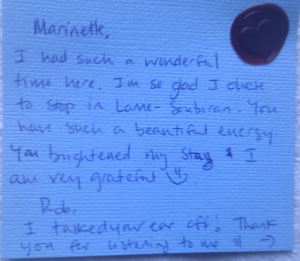 Marinette,
I had such a wonderful
time here. I'm so glad I chose
to stop in Lanne-Soubiran. You
have such a beautiful energy
You brightened my stay & I
am very grateful
Rob,
I talked your ear off! Thank
you for listening to me